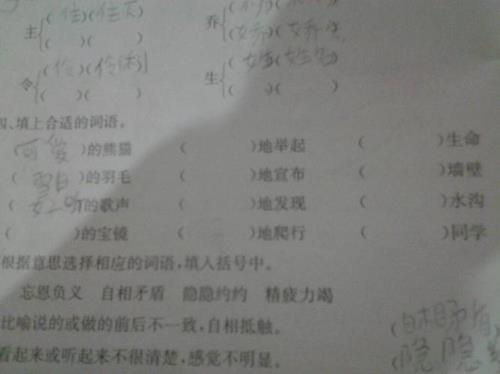 主 (住)(住下) 乔
( )( ) (娇)(娇气
令 (伶)(伶俐) 生 (姓)(姓名)
( )( ) ( )( )
四、填上合适的词语。
(可爱)的熊猫 ( )地举起 ( )生命
(雪白)的羽毛 ( )地宣布 ( )墙壁
(好听)的歌声 ( )地发现 ( )水沟
( )的宝镜 ( )地爬行 ( )同学
根据意思选择相应的词语,填入括号中。
忘恩负义 自相矛盾 隐隐约约 精疲力竭
比喻说的或做的前后不一致,自相抵触。 (自相矛盾
看起来或听起来不很清楚,感觉不明显。 (隐隐